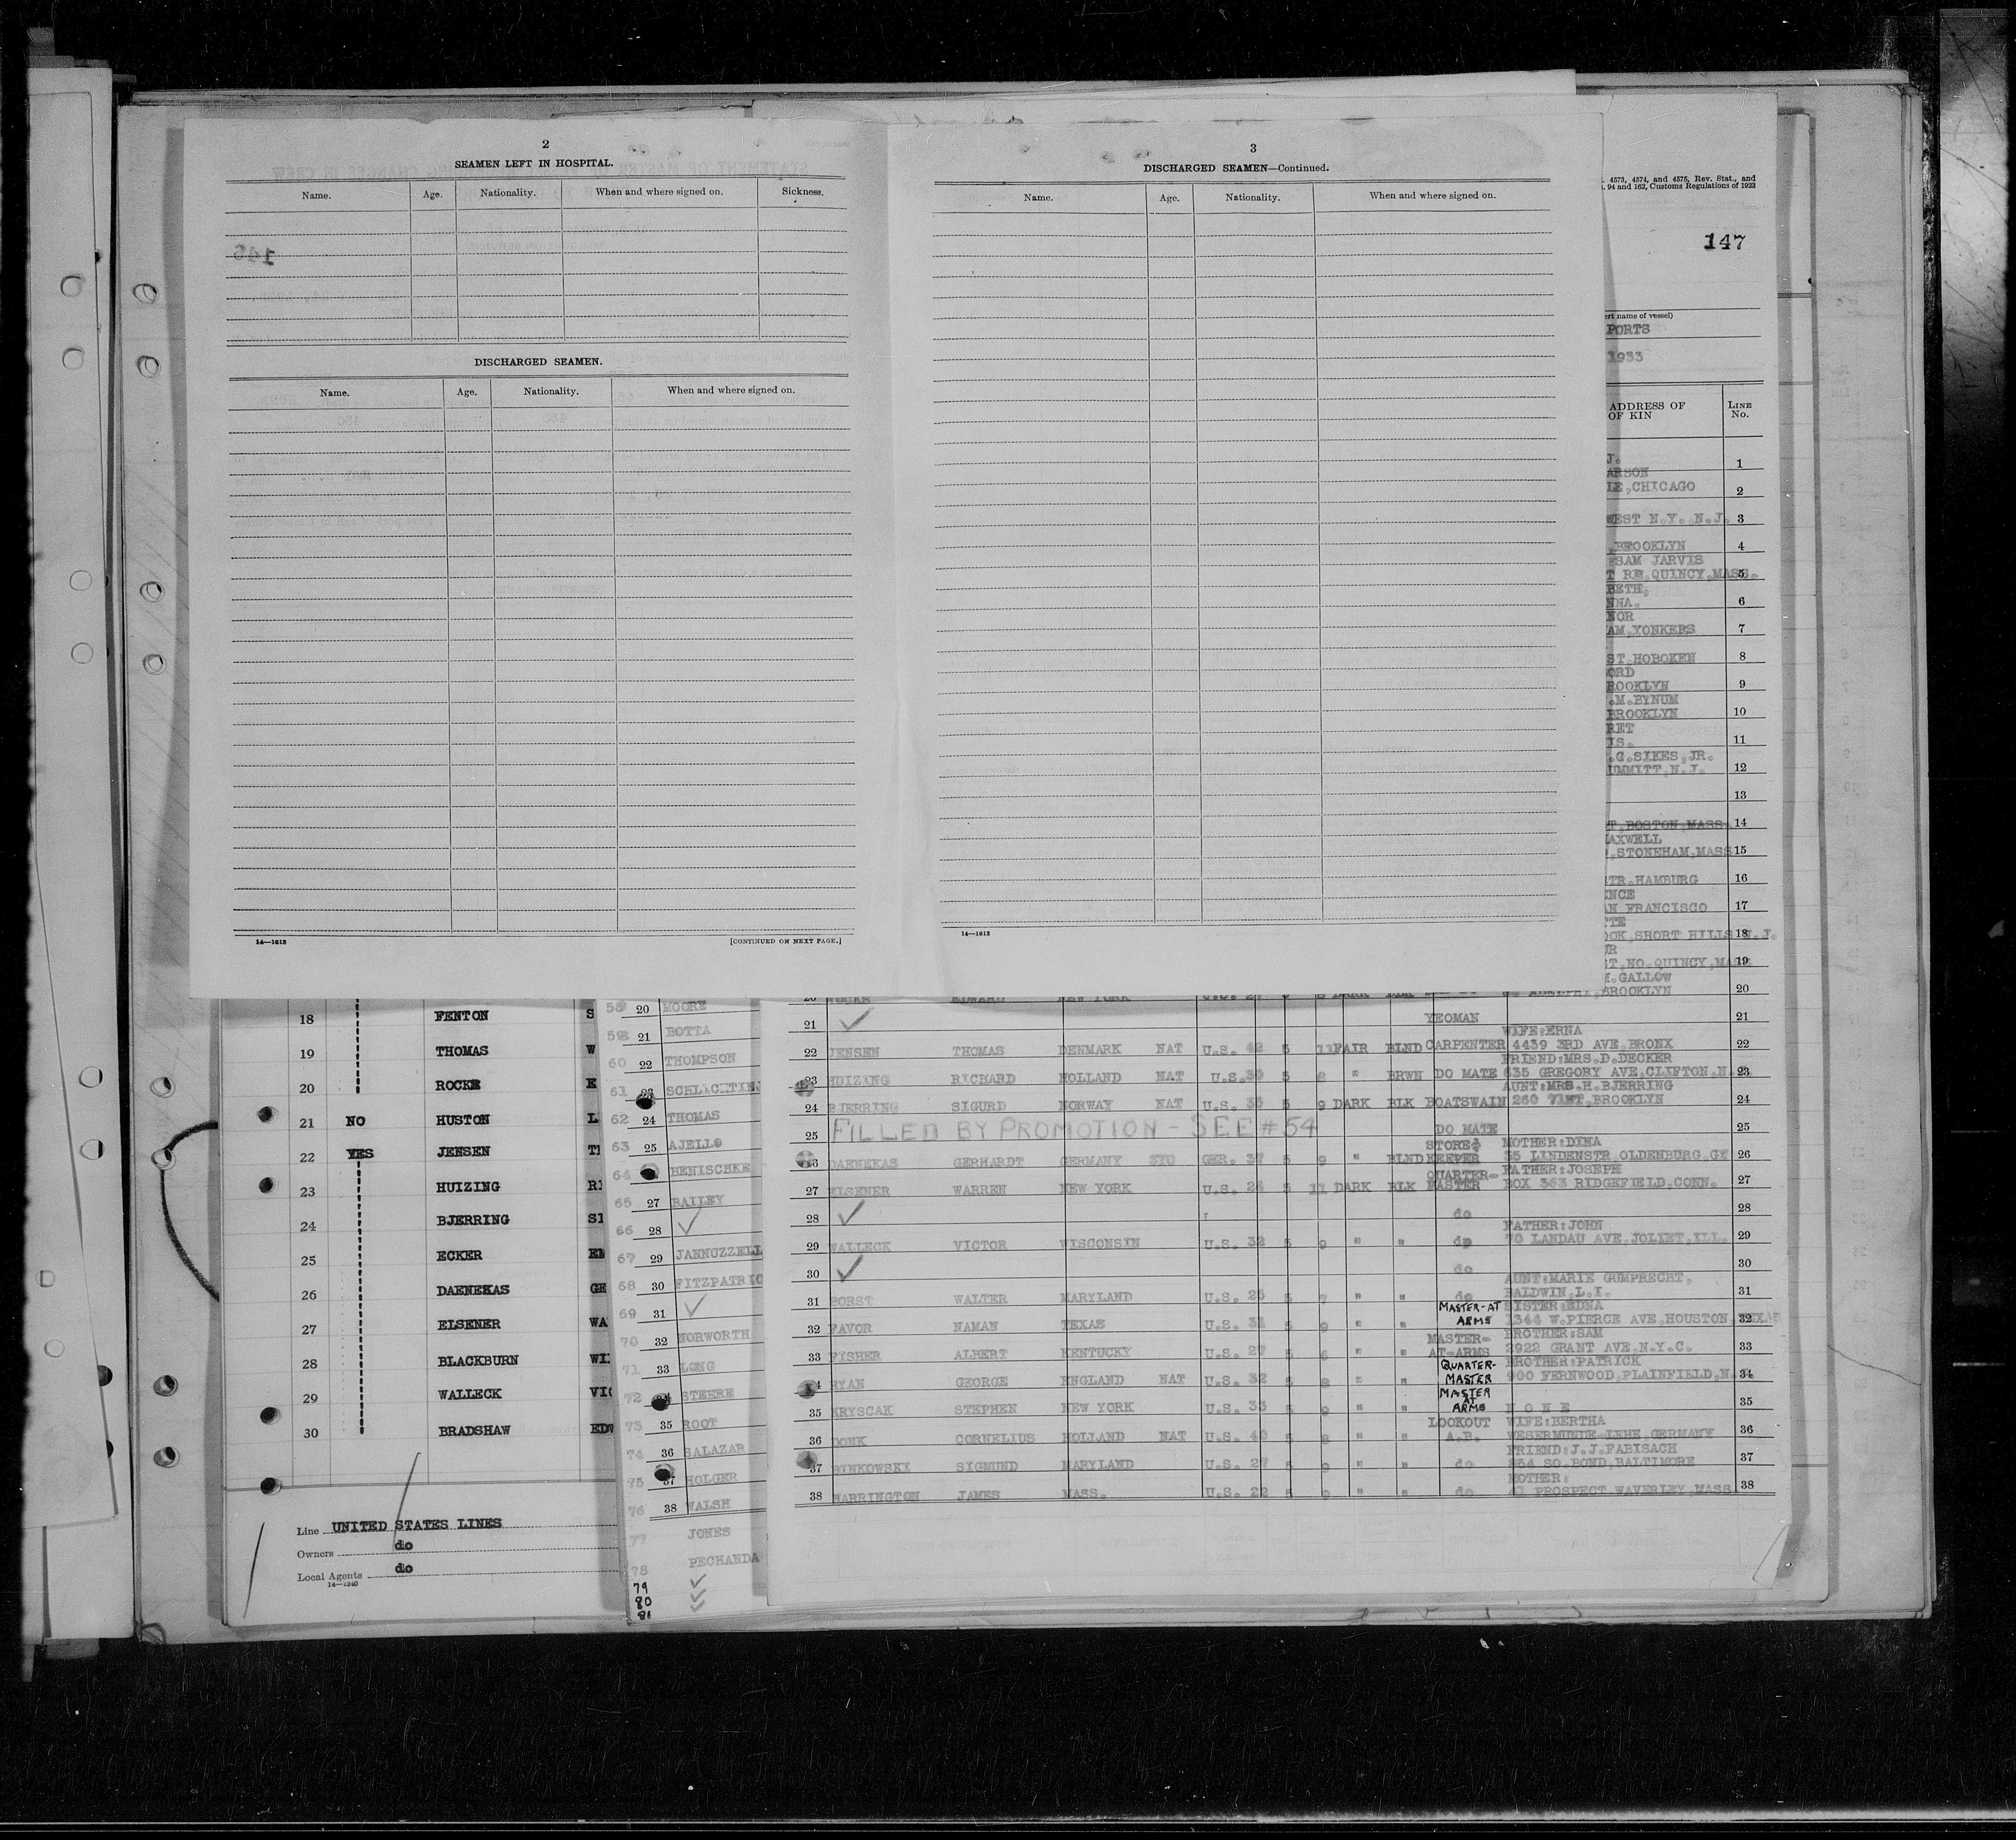 2
SEAMEN LEFT IN HOSPITAL.
Name. Age. Nationality. When and where signed on. Sickness.
DISCHARGED SEAMEN.
Name. Age. Nationality. When and where signed on.
14—1613 [CONTINUED ON NEXT PAGE.]
3
DISCHARGED SEAMEN—Continued.
Name. Age. Nationality. When and where signed on.
14—1613
4573, 4574, and 4575, Rev. Stat., and
94 and 162, Customs Regulations of 1923
147
name of vessel)
PORTS
1933
ADDRESS OF
OF KIN
LINE
No.
1
ARSON
CHICAGO 2
WEST N.Y. N.J. 3
BROOKLYN 4
SAM JARVIS
QUINCY, MASS. 5
BETH,
NNA. 6
NOR
AM, YONKERS 7
ST. HOBOKEN 8
ORD
ROOKLYN 9
.M.BYNUM
BROOKLYN 10
RET
IS. 11
.G.SIKES, JR.
UMMITT, N.J. 12
13
T, BOSTON, MASS. 14
AXWELL
STONEHAM, MASS 15
STR. HAMBURG 16
ENCE
AN FRANCISCO 17
OOK, SHORT HILLS N.J. 18
ST, NO. QUINCY, MASS 19
GALLOW
BROOKLYN 20
18 FENTON S
19 THOMAS W
20 ROCKE E
21 NO HUSTON L
22 YES JENSEN TH
23 HUIZING RI
24 BJERRING SI
25 ECKER
26 DAENEKAS GE
27 ELSENER WA
28 BLACKBURN WI
29 WALLECK VIC
30 BRADSHAW EDW
Line UNITED STATES LINES
Owners do
Local Agents do
14—1240
20 MOORE
59 21 BOTTA
60 22 THOMPSON
61 23 SCHLICHTING
62 24 THOMAS
63 25 AJELLO
64 BENISCHKE
65 27 BAILEY
66 28 ✓
67 29 JANNUZZELL
68 30 FITZPATRIC
69 31 ✓
70 32 NORWORTH
71 33 LONG
72 STEERE
73 35 ROOT
74 36 SALAZAR
75 37 HOLGER
76 38 WALSH
77 JONES
78 PECHANDA
79 ✓
80 ✓
81 ✓
20 EDWARD NEW YORK
21 ✓ YEOMAN 21
WIFE:ERNA
22 JENSEN THOMAS DENMARK NAT U.S. 42 5 11 FAIR BLND CARPENTER 4439 3RD AVE, BRONX 22
FRIEND:MRS.D.DECKER
23 HUIZING RICHARD HOLLAND NAT U.S. 30 5 8 " BRWN DO MATE 635 GREGORY AVE, CLIFTON, N. 23
AUNT:MRS.H.BJERRING
24 BJERRING SIGURD NORWAY NAT U.S. 35 5 9 DARK BLK BOATSWAIN 260 BROOKLYN 24
25 FILLED BY PROMOTION - SEE #54 DO MATE 25
STORE= MOTHER:DINA
DAENEKAS GERHARDT GERMANY GER. 37 5 9 " BLND KEEPER 35 LINDENSTR, OLDENBURG, GY 26
QUARTER- FATHER:JOSEPH
27 ELSENER WARREN NEW YORK U.S. 24 5 11 DARK BLK MASTER BOX 363 RIDGEFIELD, CONN. 27
28 ✓ do 28
FATHER:JOHN
29 WALLECK VICTOR WISCONSIN U.S. 32 5 9 " " do 70 LANDAU AVE, JOLIET, ILL. 29
30 ✓ do 30
AUNT:MARIE GUMPRECHT,
31 BORST WALTER MARYLAND U.S. 25 5 7 " " do BALDWIN, L.I. 31
MASTER-AT SISTER:EDNA
32 FAVOR NAMAN TEXAS U.S. 31 5 9 " " ARMS 1344 W. PIERCE AVE, HOUSTON, TEXAS 32
MASTER= BROTHER:SAM
33 FYSHER ALBERT KENTUCKY U.S. 27 5 6 " " AT-ARMS 2922 GRANT AVE, N.Y.C. 33
QUARTER- BROTHER:PATRICK
RYAN GEORGE ENGLAND NAT U.S. 32 5 8 " " MASTER 900 FERNWOOD, PLAINFIELD, N. 34
MASTER
AT
35 KRYSCAK STEPHEN NEW YORK U.S. 33 5 9 " " ARMS N O N E 35
LOOKOUT WIFE:BERTHA
36 DONK CORNELIUS HOLLAND NAT U.S. 40 5 8 " " A.B. WESERMUNDE-LEHE, GERMANY 36
FRIEND:J.J.FABISACH
37 SIGMUND MARYLAND U.S. 27 5 9 " " do SO. BOND, BALTIMORE 37
MOTHER:
38 WARRINGTON JAMES MASS. U.S. 22 5 9 " " do PROSPECT, WAVERLEY, MASS 38